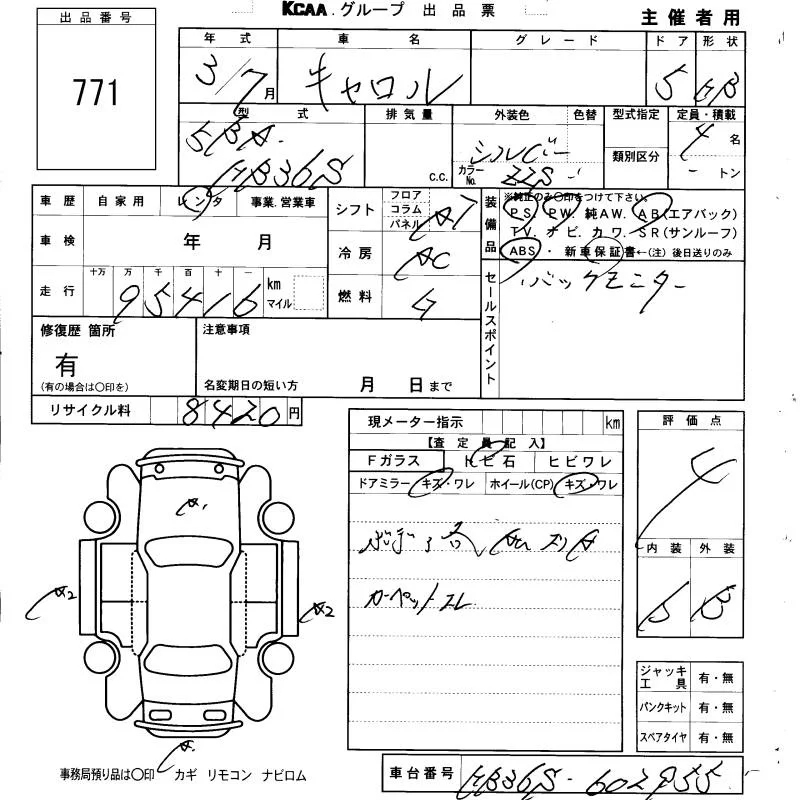 KCAA.グループ 出品票
主催者用
出品番号
771
年式 車名 グレード ドア 形状
3/7月 キャロル 5 HB
型式 排気量 外装色 色替 型式指定 定員・積載
5BA- シルバー 4名
HB36S c.c. カラーNo. ZZS- 類別区分 トン
車歴 自家用 レンタ 事業.営業車
車検 年 月
走行 十万 万 千 百 十 一 km マイル
95416
シフト フロア コラム パネル AT
冷房 AC
燃料 G
装備品
※純正のみ○印をつけて下さい。
PS. PW. 純AW. AB(エアバック)
TV. ナビ. カワ. SR(サンルーフ)
ABS・新車保証書←(注)後日送りのみ
セールスポイント
バックモニター
修復歴 箇所
有
(有の場合は○印を)
注意事項
名変期日の短い方 月 日まで
リサイクル料 8420円
現メーター指示 km
【査定員記入】
Fガラス トビ石 ヒビワレ
ドアミラー キズ・ワレ ホイール(CP) キズ・ワレ
カーペットコレ
評価点
4
内装 外装
B B
A1
A2
A2
ジャッキ工具 有・無
パンクキット 有・無
スペアタイヤ 有・無
事務局預り品は○印 カギ リモコン ナビロム
車台番号 HB36S-602955